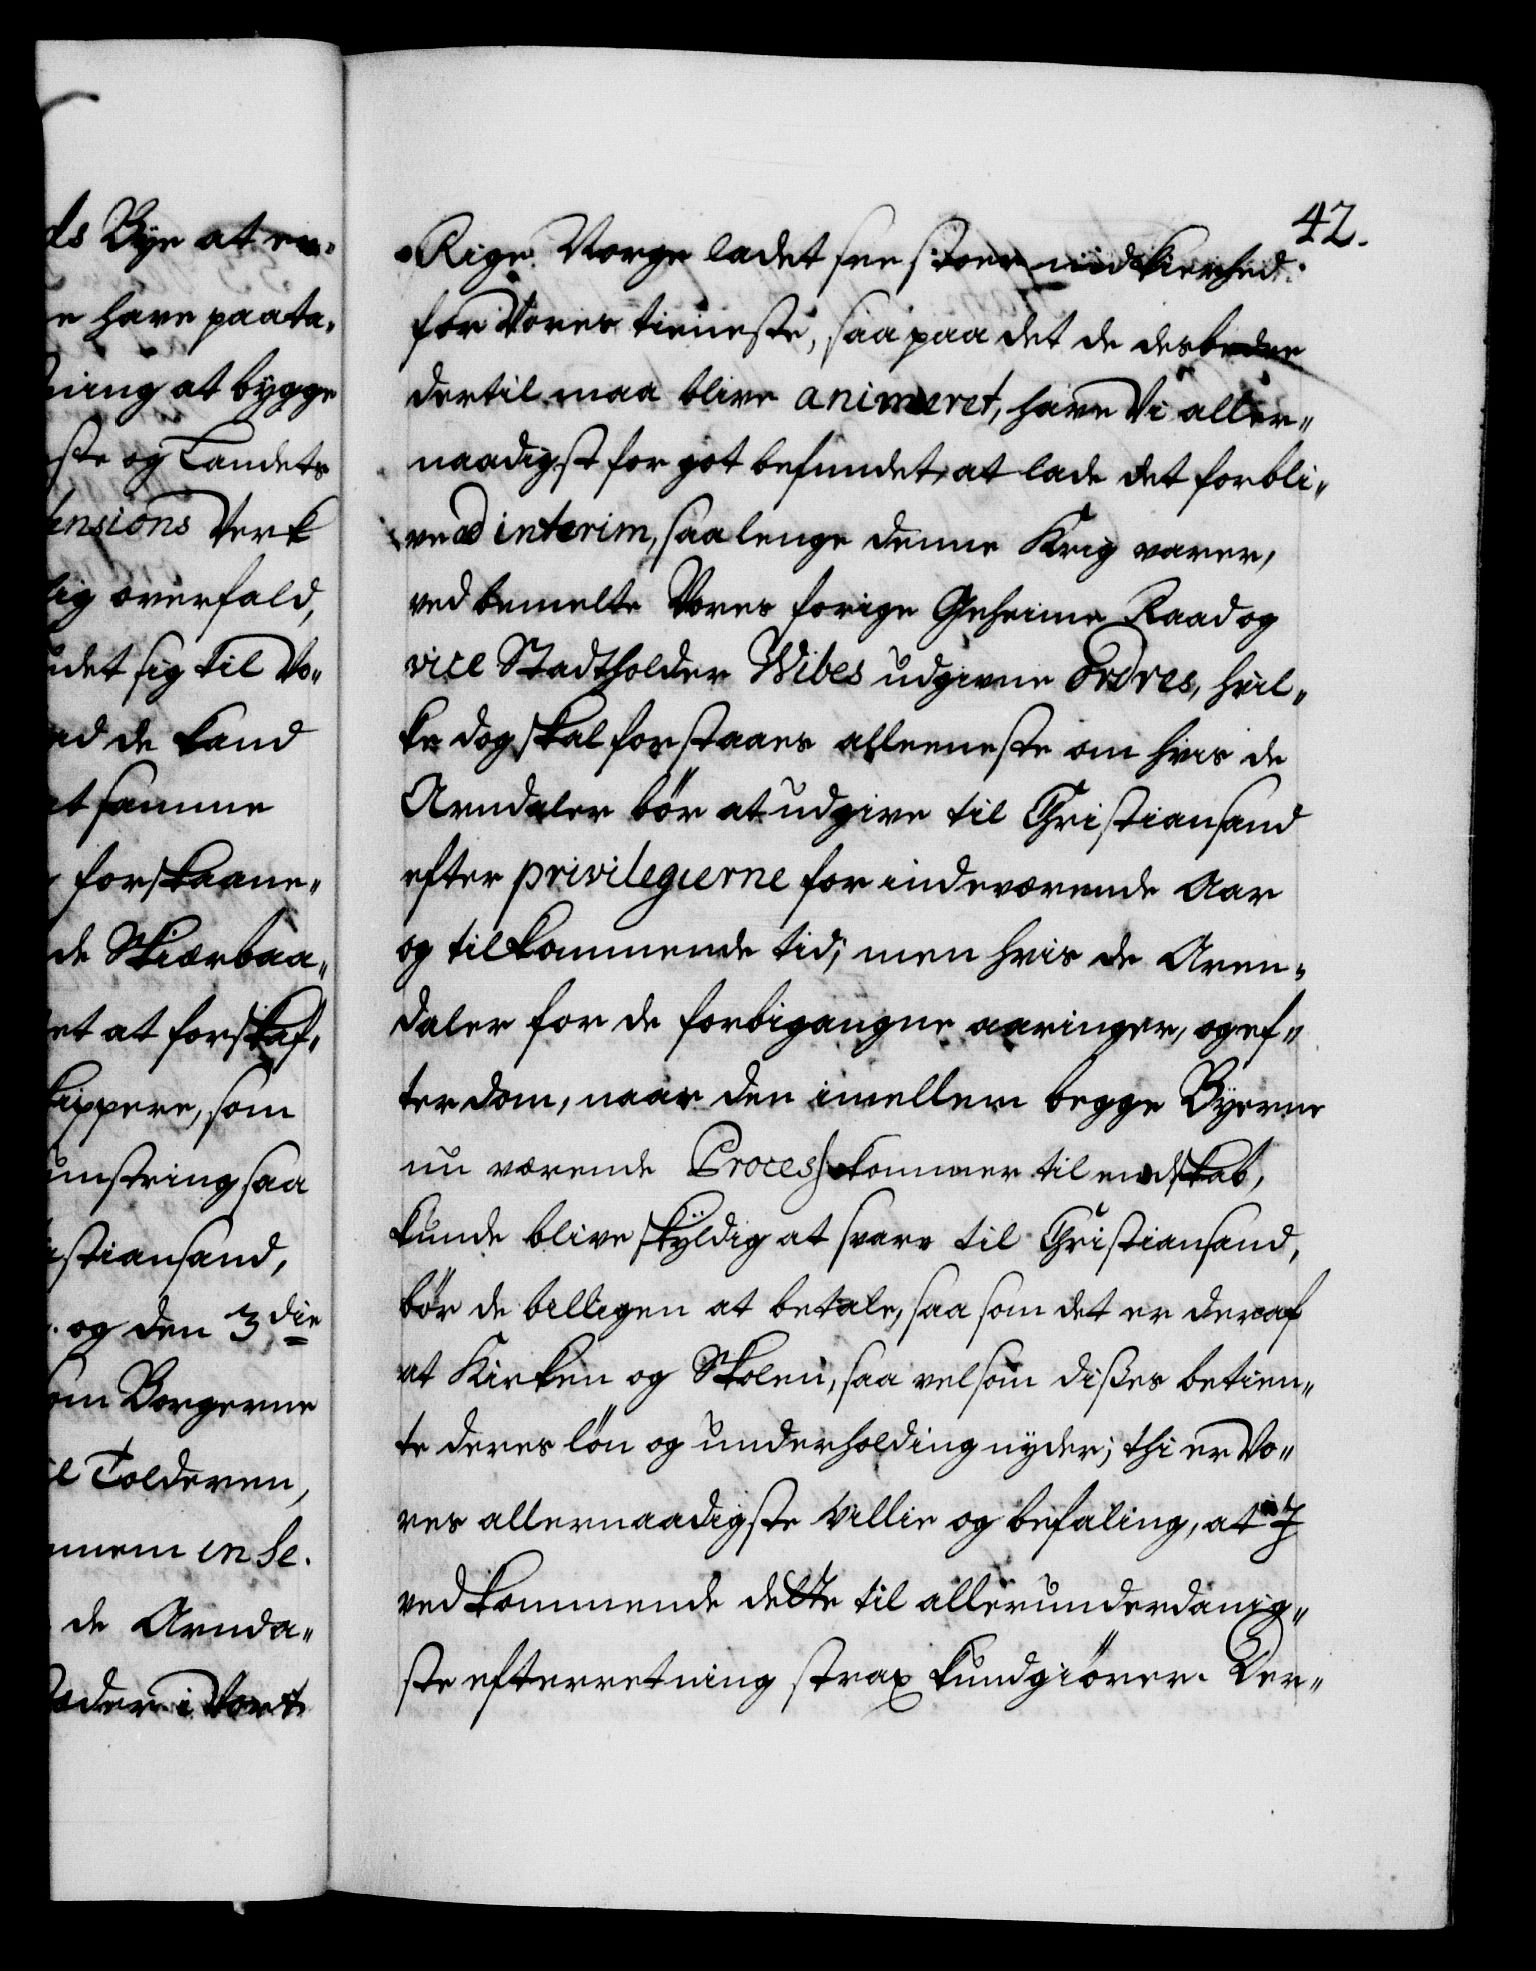 ds Bye at en-
e have paata-
ning at bygge
ste og Landets
ensions Verk
lig overfald,
ndet sig til Vo-
ad de kand
at samme
forskaane-
de Skiærbaa-
et at forskaf-
kippere, som
mnstring saa
istiansand,
og den 3die
om Borgerne
il Tolderen,
mmem en he.
de Arnda-
æder i Vort
42.
Rige Norge ladet see stoer nidkierhed
for Vores tieneste, saa paa det de desbedre
dertil maa blive animeret, have Vi aller-
naadigst for got befundet, at lade det forbli-
ve ad interim, saalenge denne Krig varer,
ved bemelte Vores forige Geheime Raad og
vice Stadtholder Wibes udgivne Ordres, hvil-
ke dog skal forstaaes alleeneste om hvis de
Arndaler bör at udgive til Christiansand
efter privilegierne for indeværende Aar
og tilkommende tid; men hvis de Aren-
daler for de forbigangne aaringer, og ef-
ter dom, naar den imellem begge Byerne
nu værende Process kommer til endskab,
kunde blive skÿldig at svare til Christiansand,
bör de billigen at betale, saasom det er deraf
at Kirken og Skolen, saa velsom disses betien-
te deres lön og underholding nyder; thi er Vo-
res allernaadigste Villie og befaling, at I
vedkommende dette til allerunderdanig-
ste efterretning strax kundgiörer. Der-